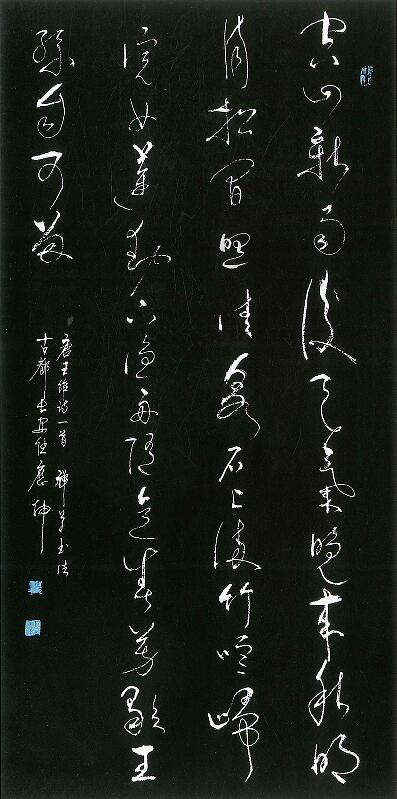 空山新雨後天氣晚來秋明
月松間照清泉石上流竹喧歸
浣女蓮動下漁舟隨意春芳歇王
孫自可留
唐王維詩一首 禪草書法
古都長安任應坤